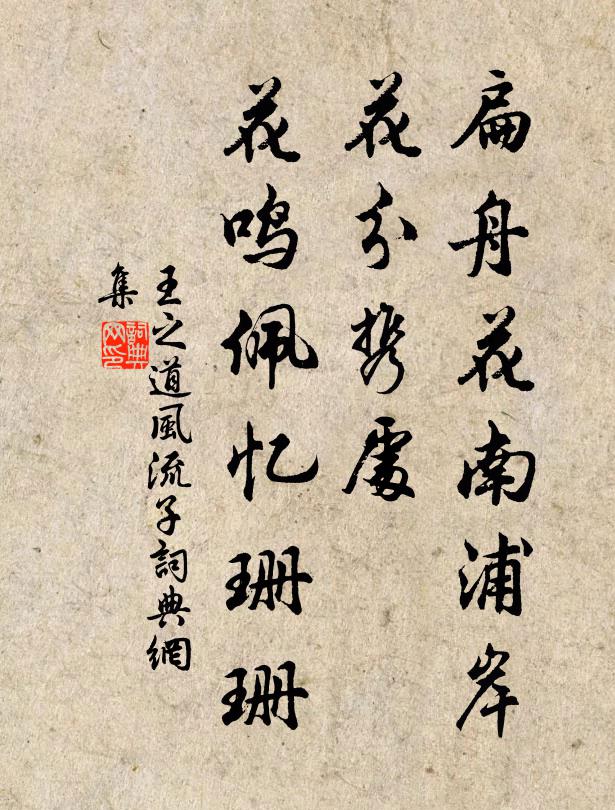 扁舟花南浦岸
花分携處
花鸣佩忆珊珊
王之道風流子詞典網
集
詞典
网印